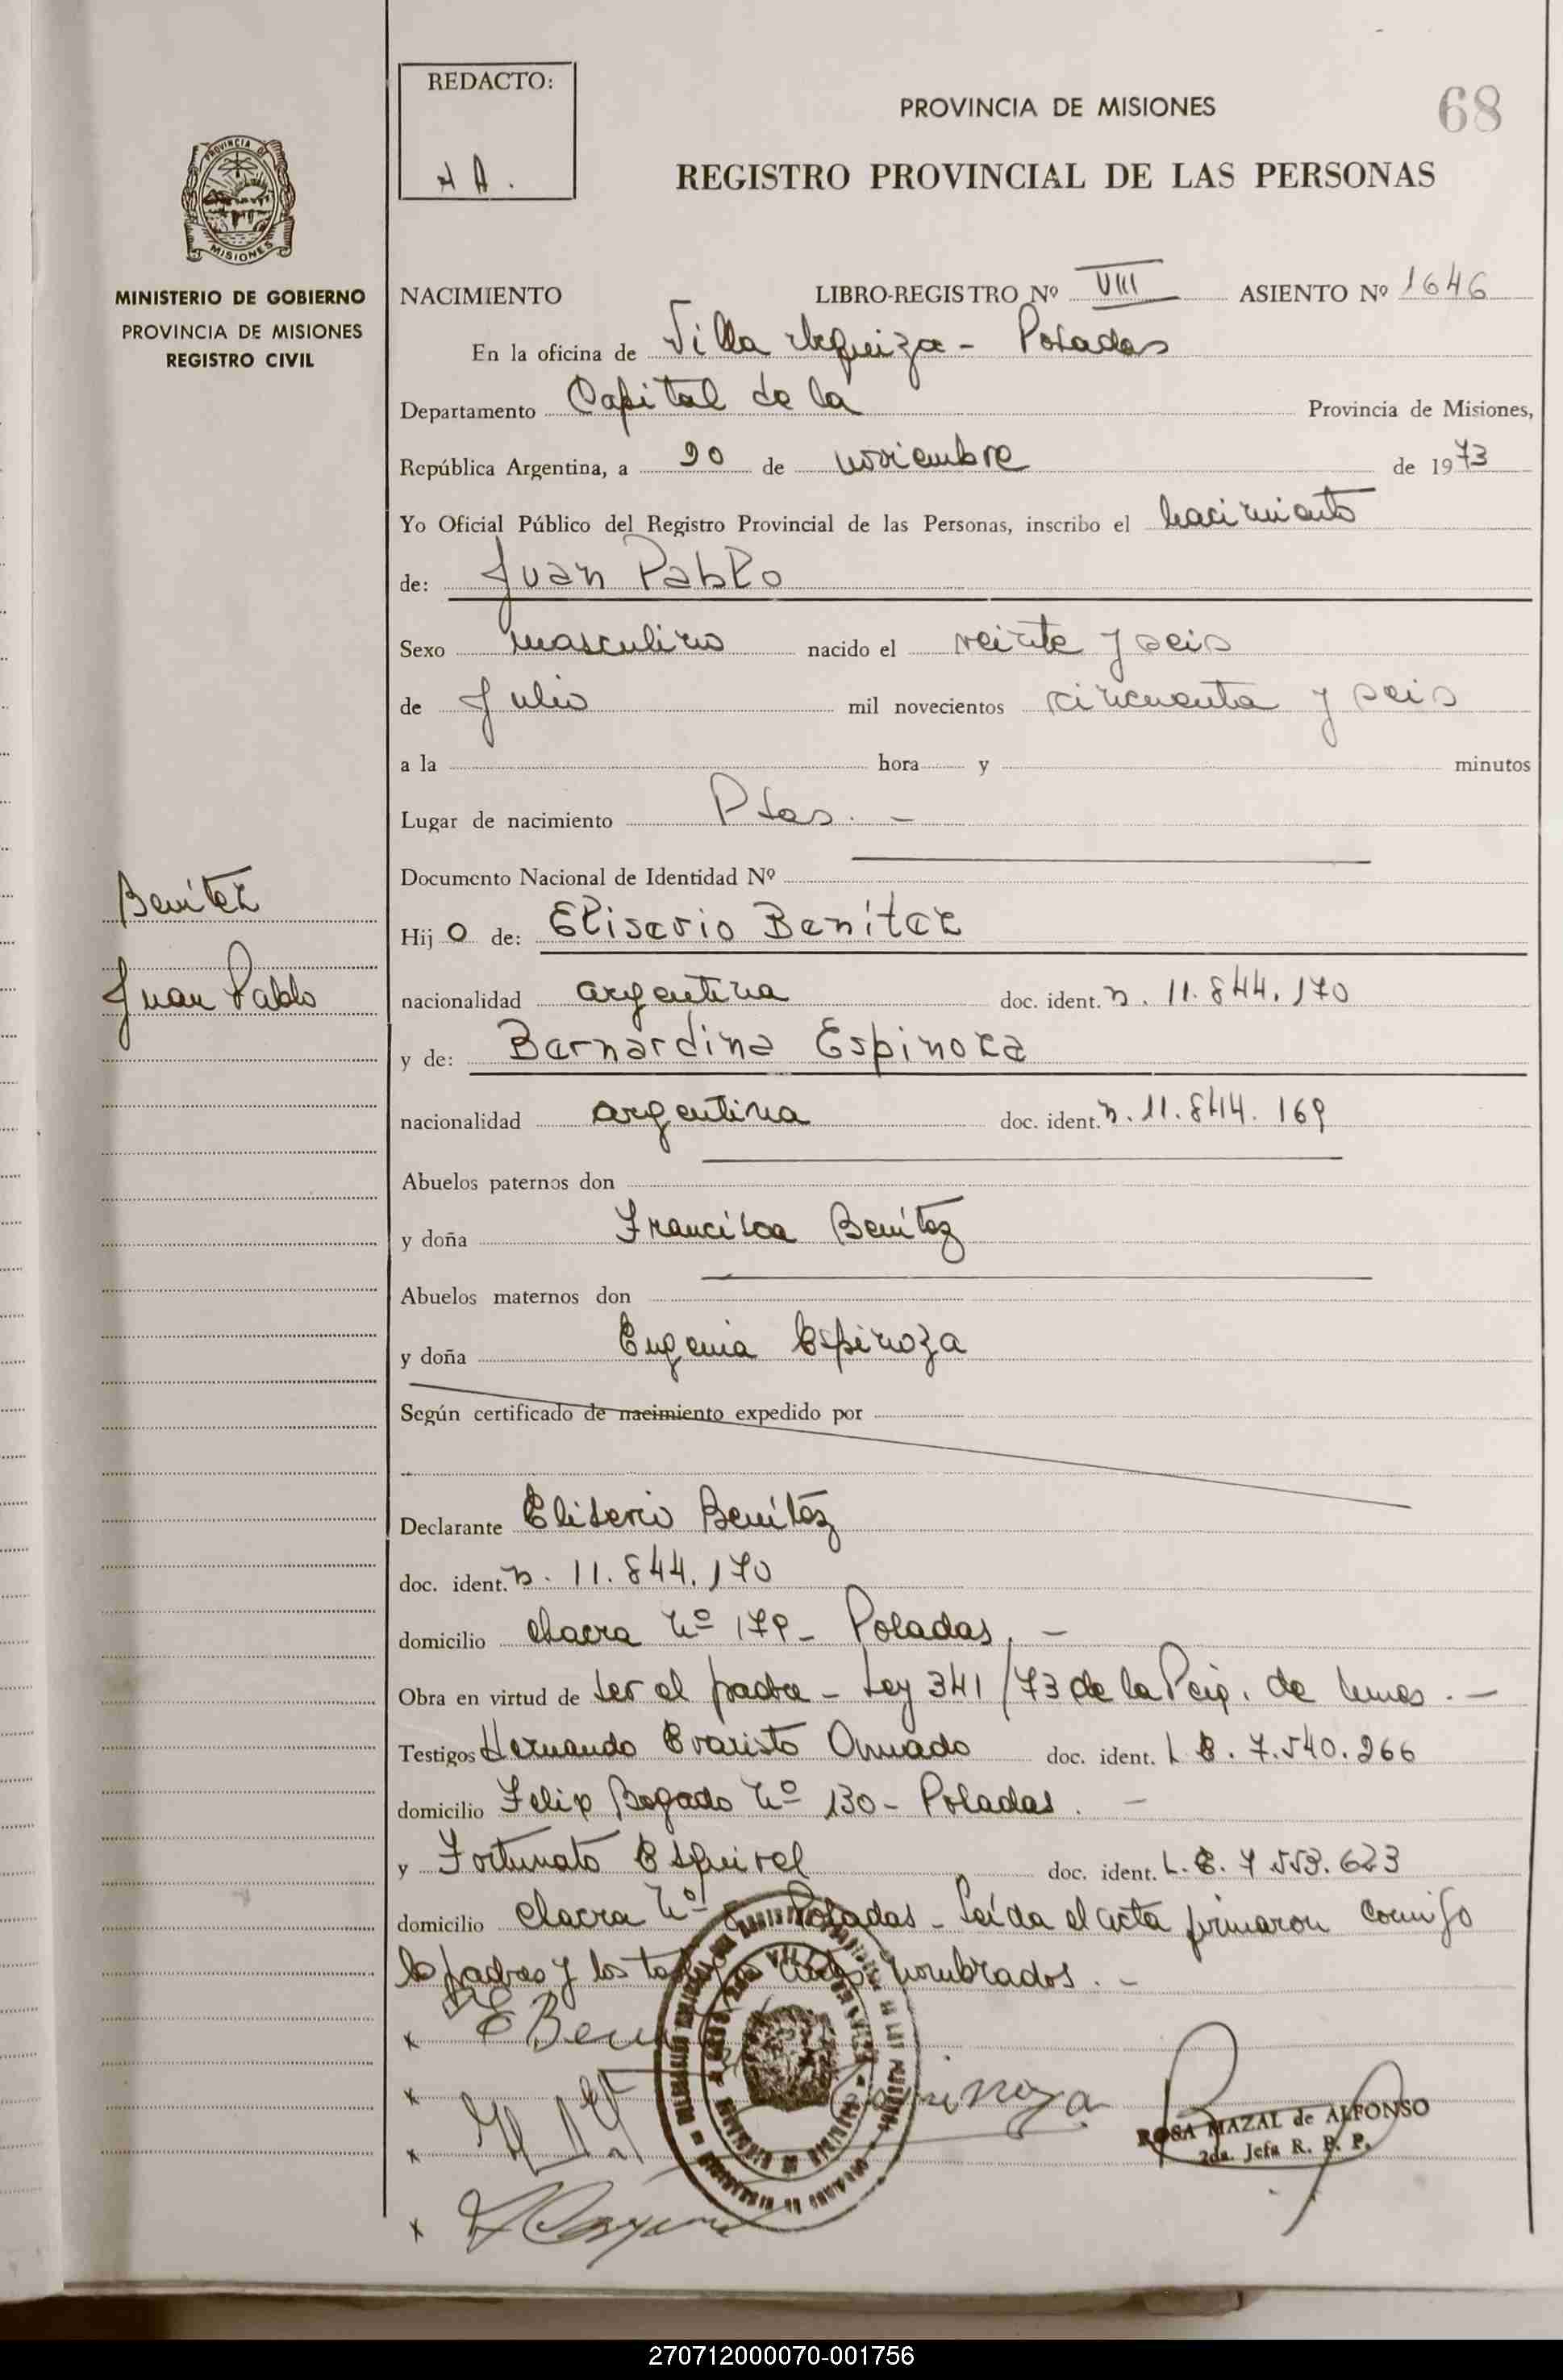 REDACTO:
H A.
PROVINCIA DE MISIONES
68
REGISTRO PROVINCIAL DE LAS PERSONAS
PROVINCIA DE
MISIONES
MINISTERIO DE GOBIERNO
PROVINCIA DE MISIONES
REGISTRO CIVIL
NACIMIENTO LIBRO-REGISTRO Nº VIII ASIENTO Nº 1646
En la oficina de Villa Urquiza - Posadas
Departamento Capital de la Provincia de Misiones,
República Argentina, a 20 de noviembre de 1973
Yo Oficial Público del Registro Provincial de las Personas, inscribo el nacimiento
de: Juan Pablo
Sexo masculino nacido el veinte y seis
de Julio mil novecientos cincuenta y seis
a la hora y minutos
Lugar de nacimiento Psas. -
Documento Nacional de Identidad Nº
Benítez
Juan Pablo
Hij o de: Eliserio Benítez
nacionalidad argentina doc. ident. n. 11.844.170
y de: Bernardina Espinoza
nacionalidad argentina doc. ident. n. 11.844.169
Abuelos paternos don
y doña Francisca Benítez
Abuelos maternos don
y doña Eugenia Espinoza
Según certificado de nacimiento expedido por
Declarante Eliserio Benítez
doc. ident. n. 11.844.170
domicilio chacra Nº 179 - Posadas. -
Obra en virtud de ser el padre - Ley 341/73 de la Pcia. de Mnes. -
Testigos Hernando Evaristo Amado doc. ident. L E. 7.540.266
domicilio Felix Bogado Nº 130 - Posadas. -
y Fortunato Esquivel doc. ident. L. E. 7 553.623
domicilio chacra Nº Posadas - Leída el acta firmaron conmigo
los padres y los testigos antes nombrados. -
x E Beni
x Espinoza
x
x
ROSA MAZAL de ALFONSO
2da. Jefa R. P. P.
270712000070-001756